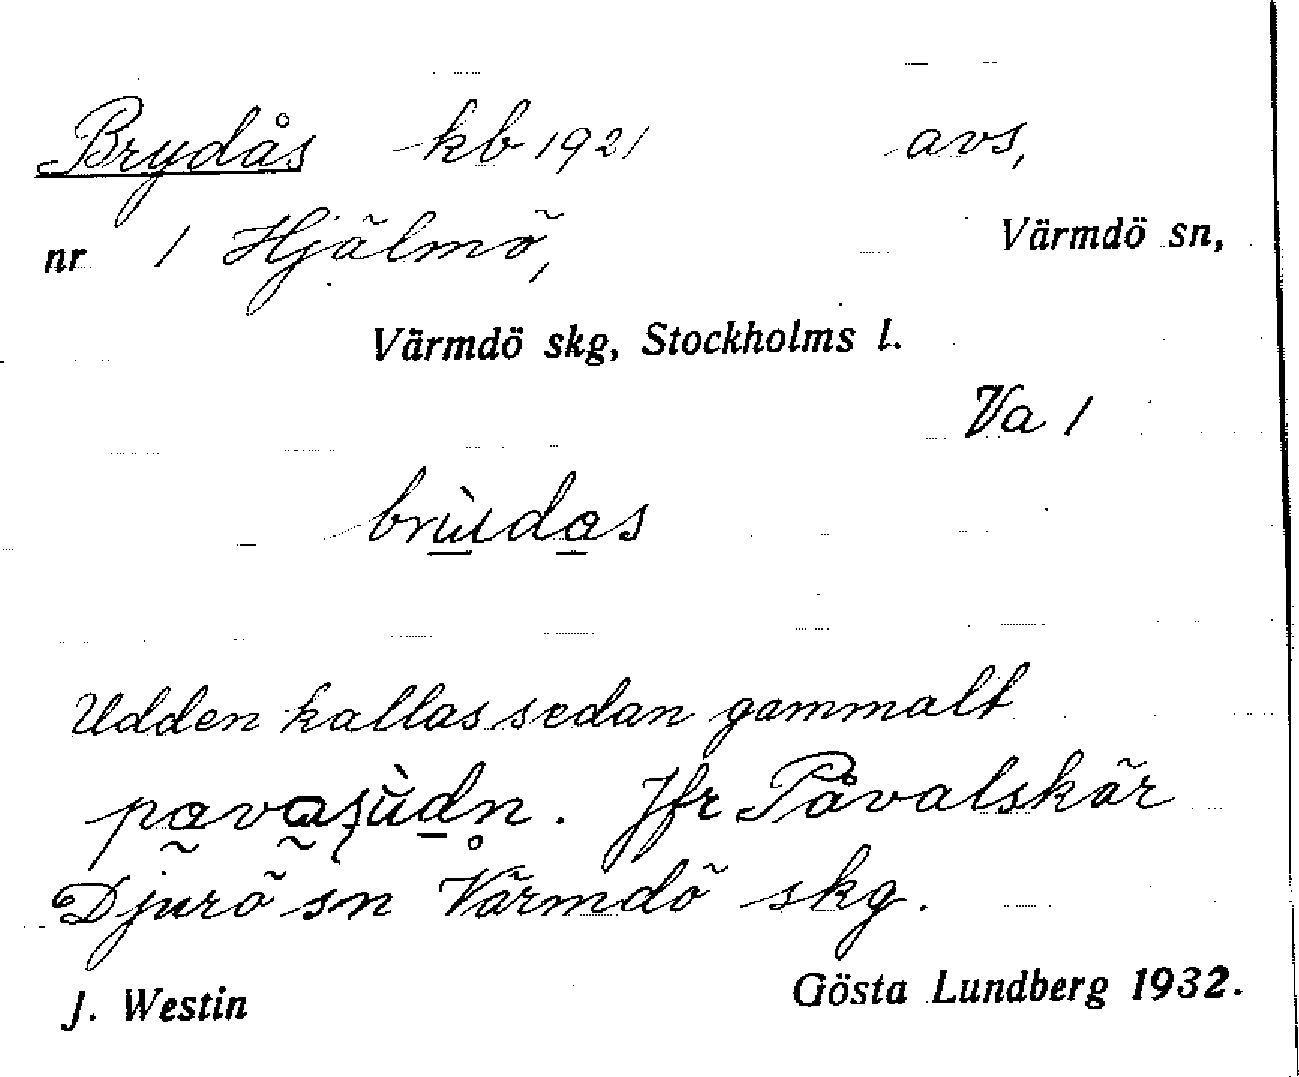 Brydås kb 1921 avs,
nr 1 Hjälmö, Värmdö sn,
Värmdö skg, Stockholms l.
Va 1
brùdas
Udden kallas sedan gammalt
Jfr Påvalskär
Djurö sn Värmdö skg.
J. Westin Gösta Lundberg 1932.